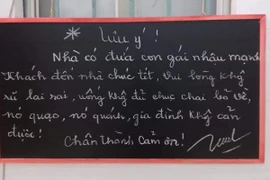 Lưu ý!
Nhà có đứa con gái nhậu mạnh
Khách đến nhà chúc tết, vui lòng khg
rũ lai rai, uống khg đủ chục chai bả về,
nó quạo, nó quánh, gia đình khg cản
được!
Chân thành cảm ơn!